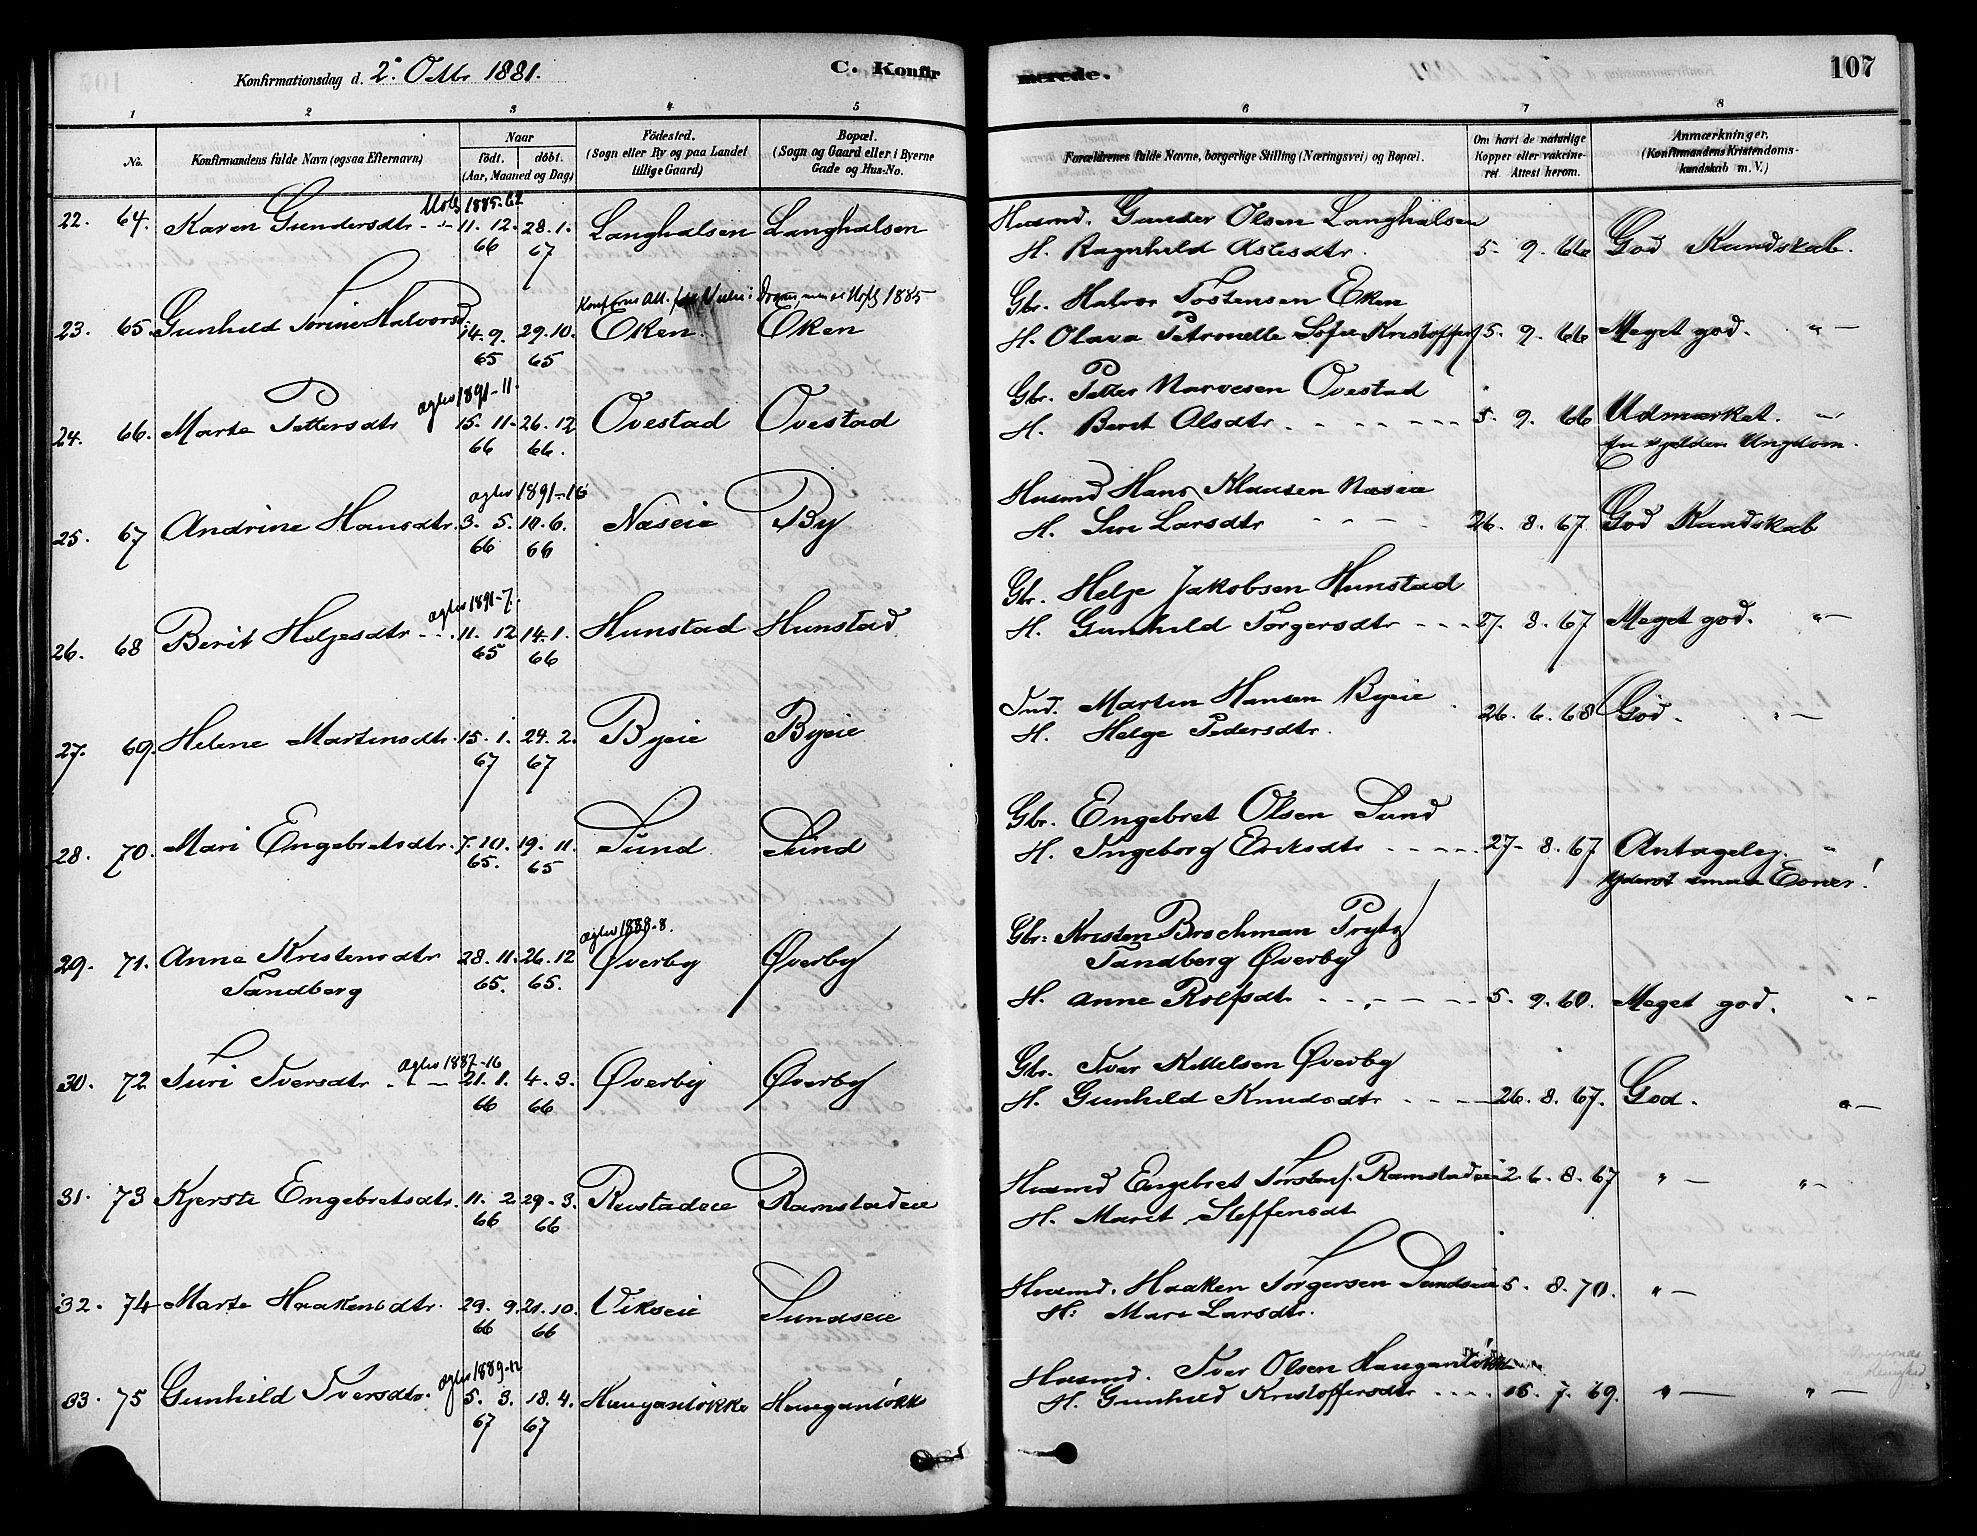 Konfirmationsdag d. 2. Oktbr 1881.
C. Konfirmerede.
107
1 2 3 4 5 6 7 8
No.
Konfirmandens fulde Navn (ogsaa Efternavn)
Naar
födt. döbt.
(Aar, Maaned og Dag)
Födested.
(Sogn eller By og paa Landet
tillige Gaard)
Bopæl.
(Sogn og Gaard eller i Byerne
Gade og Hus-No.
Forældrenes fulde Navne, borgerlige Stilling (Næringsvei) og Bopæl.
Om havt de naturlige
Kopper eller vakcine-
ret. Attest herom.
Anmærkninger.
(Konfirmandens Kristendoms-
kundskab m. V.)
22. 64. Karen Gundersdtr 11. 12. 66 28. 1. 67 Langhalsen Langhalsen
Husmd. Gunder Olsen Langhalsen
H. Ragnhild Aslesdtr. 5. 9. 66 God Kundskab.
1885
23. 65. Gunhild Torine Halvorsd. 14. 9. 65 29. 10. 65 Eken. Eken
Gbr. Halvor Tostensen Eken
H. Olava Petronelle Sofie Kristoffersd 5. 9. 66 Meget god. "—
agtev 1891-11.
24. 66. Marte Pettersdtr 15. 11. 66 26. 12 66. Ovestad Ovestad
Gbr. Petter Narvesen Ovestad
H. Berit Olsdtr 5. 9. 66 Udmærket. "—
En sjelden Ungdom.
agtev 1891-16
25. 67 Andrine Hansdtr. 3. 5. 66 10. 6. 66 Næseie By
Husmd Hans Klausen Næseie
H. Siri Larsdtr 26. 8. 67. God Kundskab
agtev 1891-7.
26. 68 Berit Helgesdtr 11. 12 65 14. 1. 66 Hunstad Hunstad
Gbr. Helge Jakobsen Hunstad
H. Gunhild Torgersdtr 27. 8. 67 Meget god. "—
27. 69. Helene Martinsdtr. 15. 1. 67 24. 2. 67 Byeie Byeie
Ind. Martin Hansen Byeie
H. Helge Pedersdtr. 26. 6. 68 God. "—
28. 70. Mari Engebretsdtr. 7. 10. 65. 19. 11. 65 Sund Sund
Gbr. Engebret Olsen Sund
H. Ingeborg Eriksdtr 27. 8. 67. Antagelig. "
Yderst smaa Evner!
agtev 1888-8.
29. 71. Anne Kristensdtr 28. 11. 65. 26. 12 65. Øverby Øverby
Tandberg
Gbr: Kristen Brochman Prytz
Tandberg Øverby
H. Anne Rolfsdt 5. 9. 60. Meget god. "
agtev 1887-16
30. 72 Turi Iversdtr 21. 1. 66 4. 3. 66 Øverby Øverby
Gbr. Iver Kittelsen Øverby
H. Gunhild Knudsdtr 26. 8. 67. God. "—
31. 73 Kjersti Engebretsdtr. 11. 2. 66 29. 3. 66 Rustadeie Ramstadeie
Husmd Engebret Torstens. Ramstadeie 26. 8. 67 "— "—
H. Marit Steffensdt
32. 74 Marte Haakensdtr. 29. 9. 66 21. 10. 66 Vikseie Sundseie
Husmd. Haaken Torgersen Sundseie 5. 8. 70. "—
H. Mari Larsdtr.
agtev 1889-12
33. 75 Gunhild Iversdtr. 5. 3. 67 18. 4. 67 Hauganløkke Hauganløkk
Husmd. Iver Olsen Hauganløkk
H. Gunhild Kristoffersdtr 16. 7. 69. "— "—